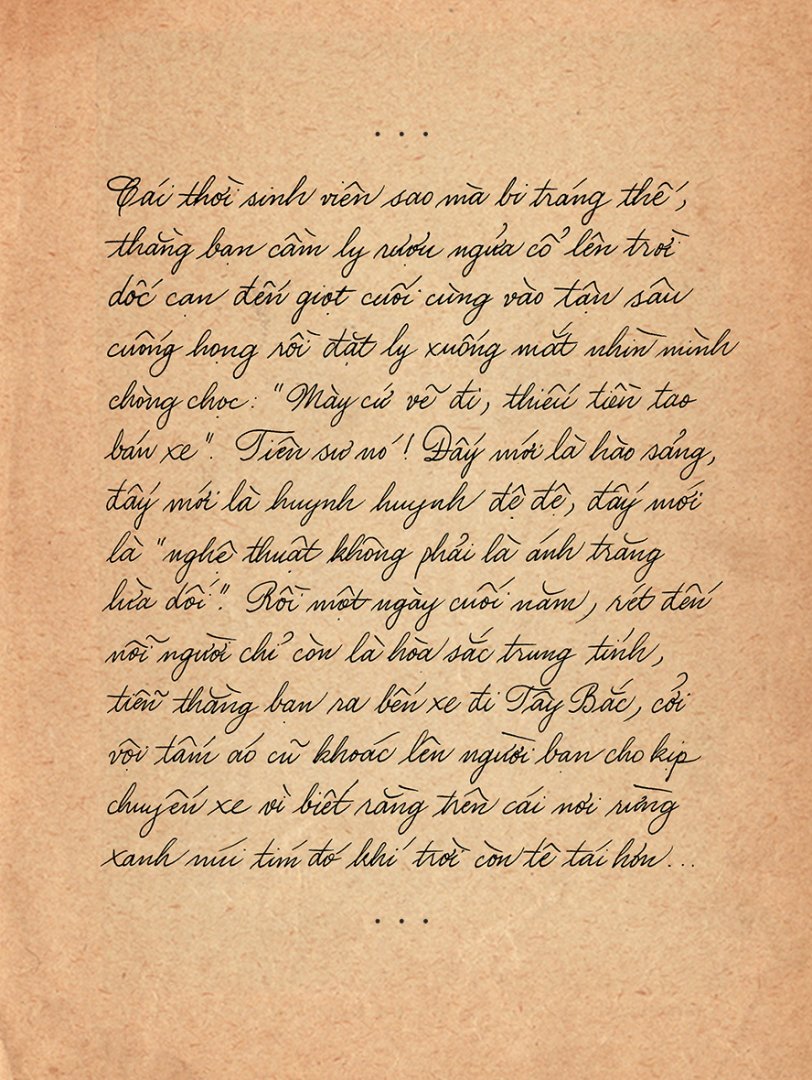 ...
Cái thời sinh viên sao mà bi tráng thế,
thằng bạn cầm ly rượu ngửa cổ lên trời
dốc cạn đến giọt cuối cùng vào tận sâu
cuống họng rồi đặt ly xuống mắt nhìn mình
chòng chọc: "Mày cứ vẽ đi, thiếu tiền tao
bán xe". Tiên sư nó! Đấy mới là hào sảng,
đấy mới là huynh huynh đệ đệ, đấy mới
là "nghệ thuật không phải là ánh trăng
lừa dối". Rồi một ngày cuối năm, rét đến
nỗi người chỉ còn là hòa sắc trung tính,
tiễn thằng bạn ra bến xe đi Tây Bắc, cởi
vội tấm áo cũ khoác lên người bạn cho kịp
chuyến xe vì biết rằng trên cái nơi rừng
xanh núi tím đó khí trời còn tê tái hơn...
...